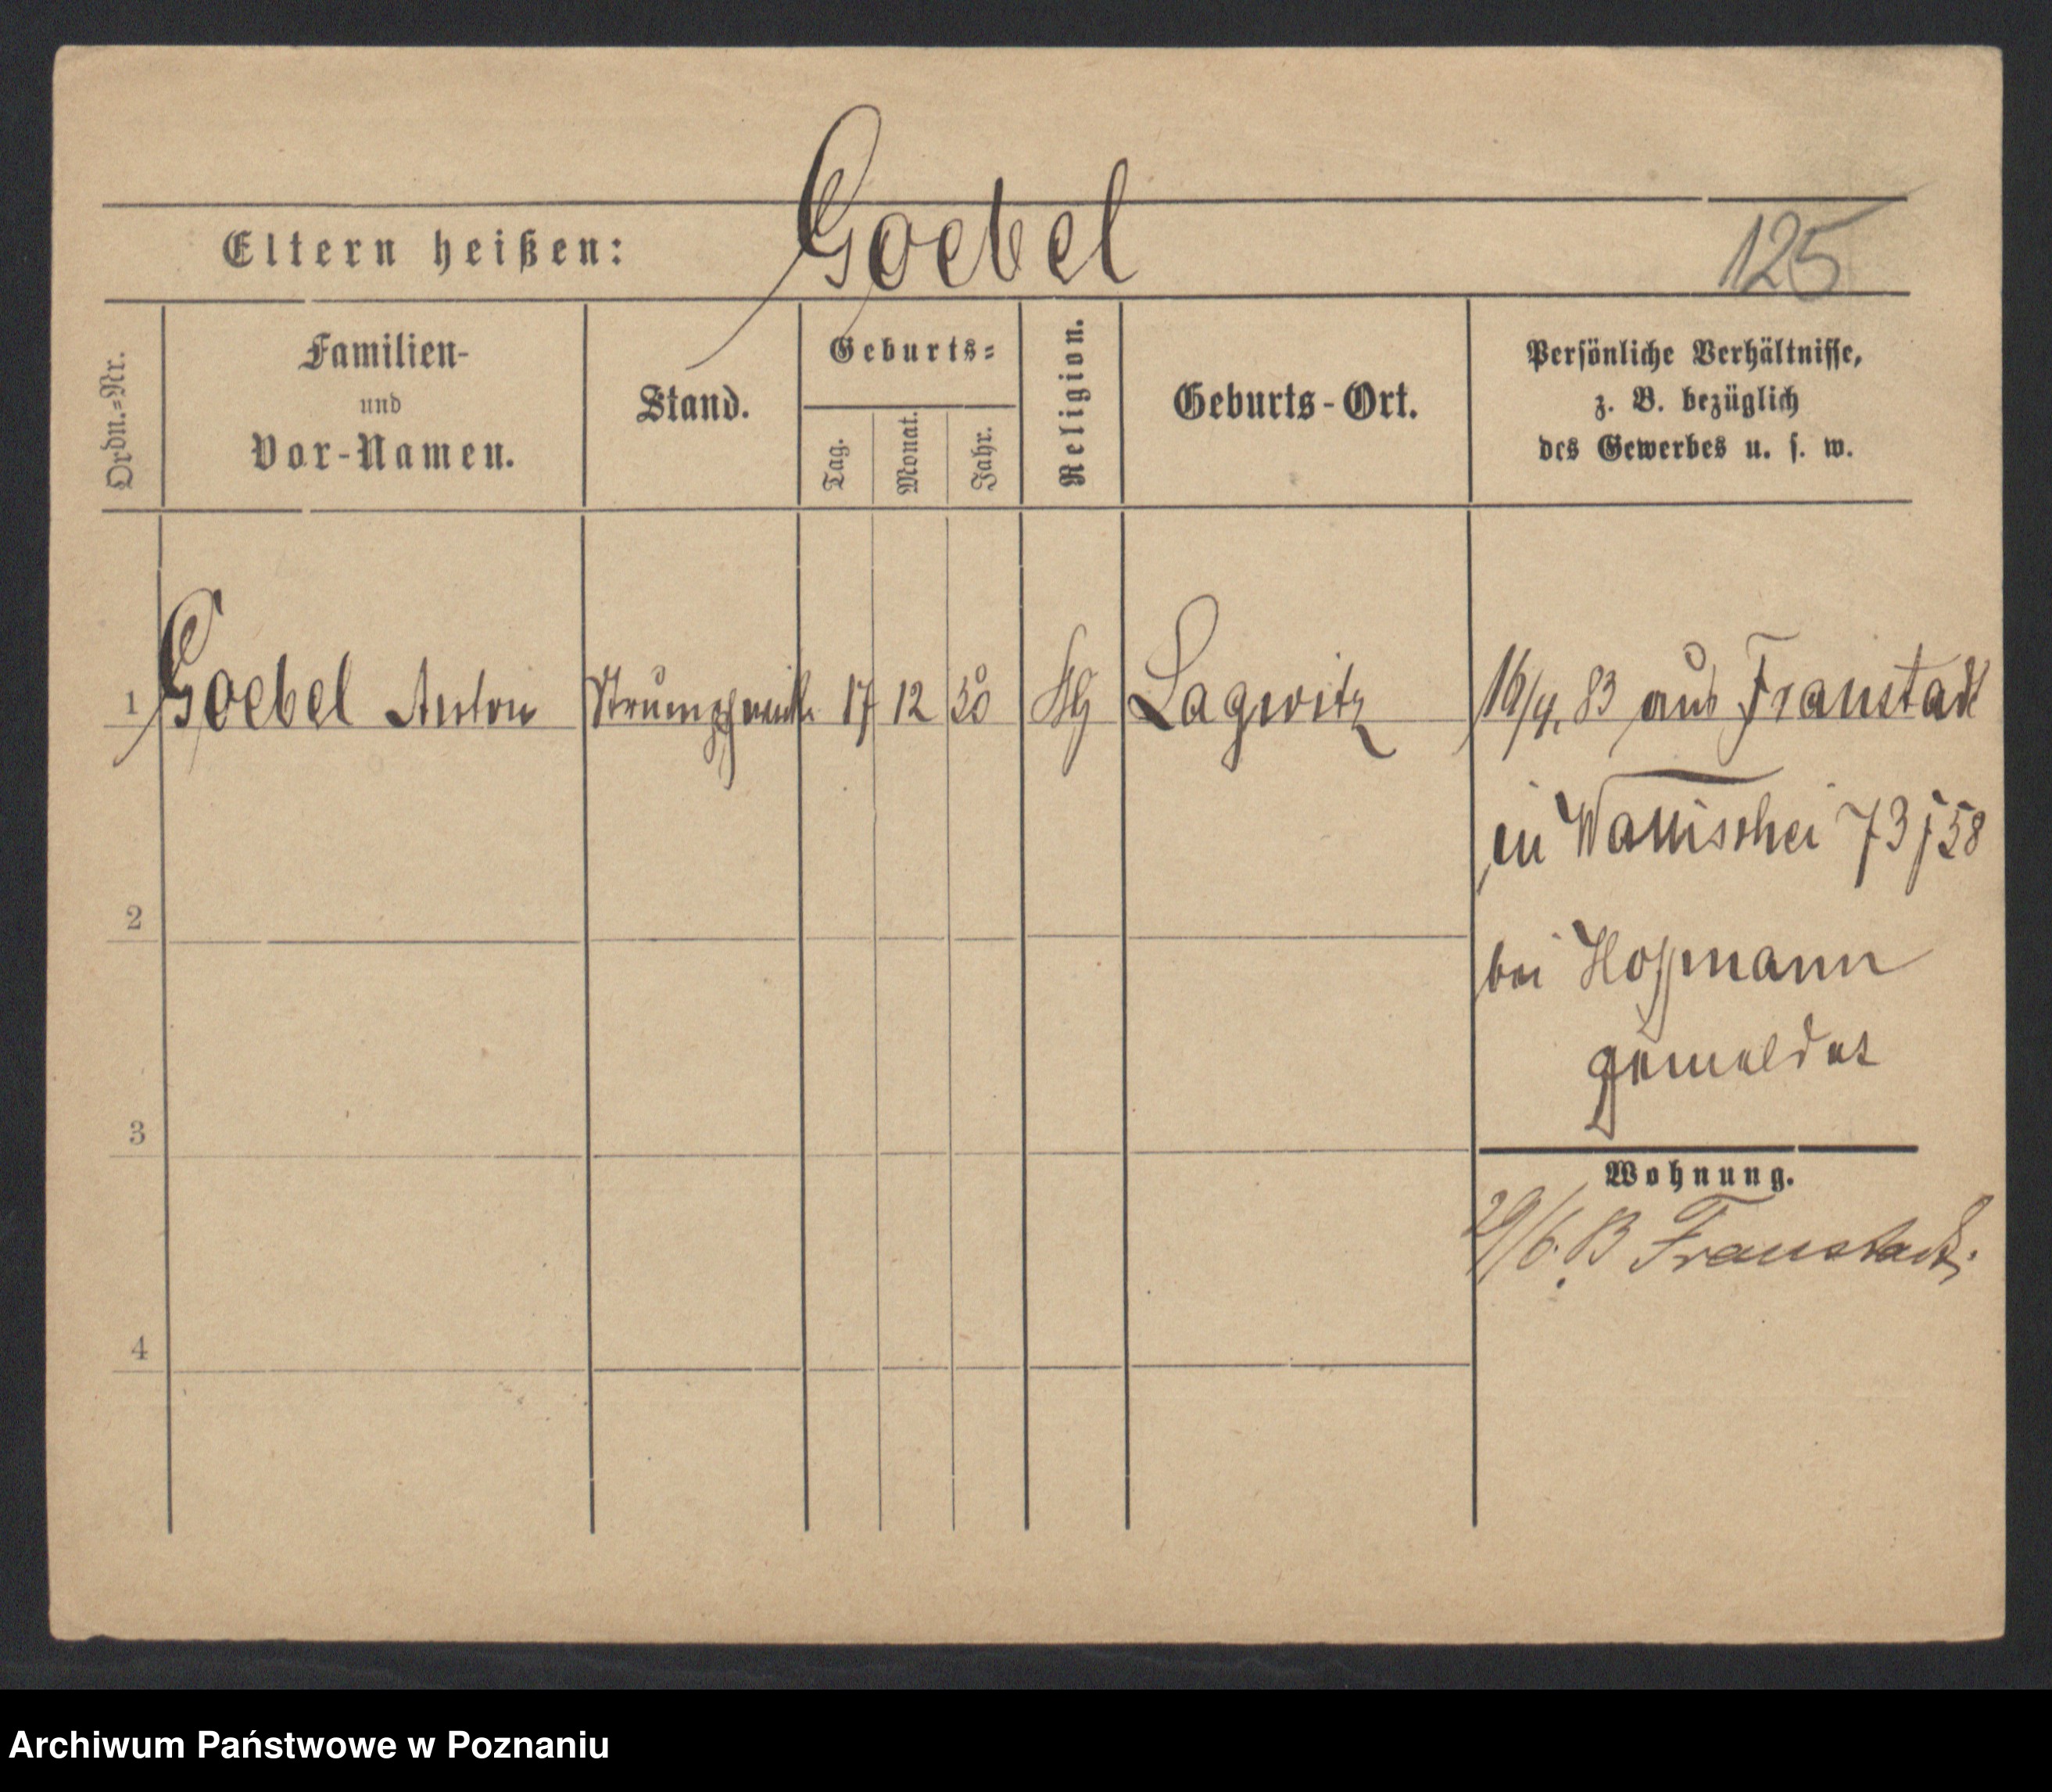 Goebel
Eltern heißen:
125
Ordn.=Nr.
Familien-
und
Vor-Namen.
Stand.
Geburts=
Tag.
Monat.
Jahr.
Religion.
Geburts-Ort.
Persönliche Verhältnisse,
z. B. bezüglich
des Gewerbes u. s. w.
1 Goebel Anton 17 12 50 Lagwitz 83 aus Fraustadt
in Wallischei 73/58
bei Hoffmann
gemeldet
2
3
4
Wohnung.
29/6. Fraustadt.
Archiwum Państwowe w Poznaniu